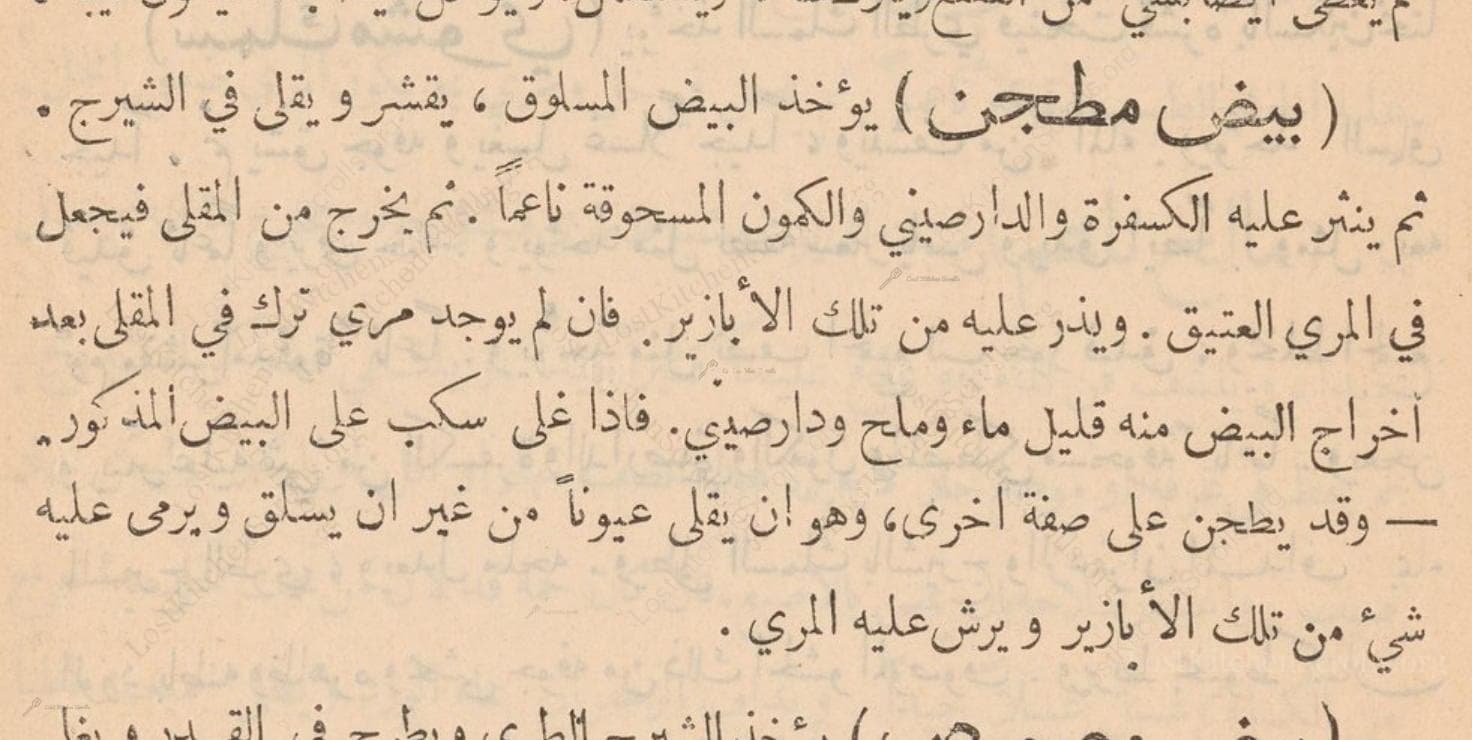 (بيض مطجن) يوٴخذ البيض المسلوق ، يقشر و يقلى في الشيرج .
ثم ينثر عليه الكسفرة والدارصيني والكمون المسحوقة ناعماً . ثم يخرج من المقلى فيجعل
في المري العتيق . ويذر عليه من تلك الأبازير . فان لم يوجد مري ترك في المقلى بعد
اخراج البيض منه قليل ماء وملح ودارصيني . فاذا غلى سكب على البيض المذكور .
— وقد يطجن على صفة اخرى، وهو ان يقلى عيوناً من غير ان يسلق و يرمى عليه
شيٴ من تلك الأبازير و يرش عليه المري .
يوٴخذ الشيرج الطري و يطرح في القدر و يغلى